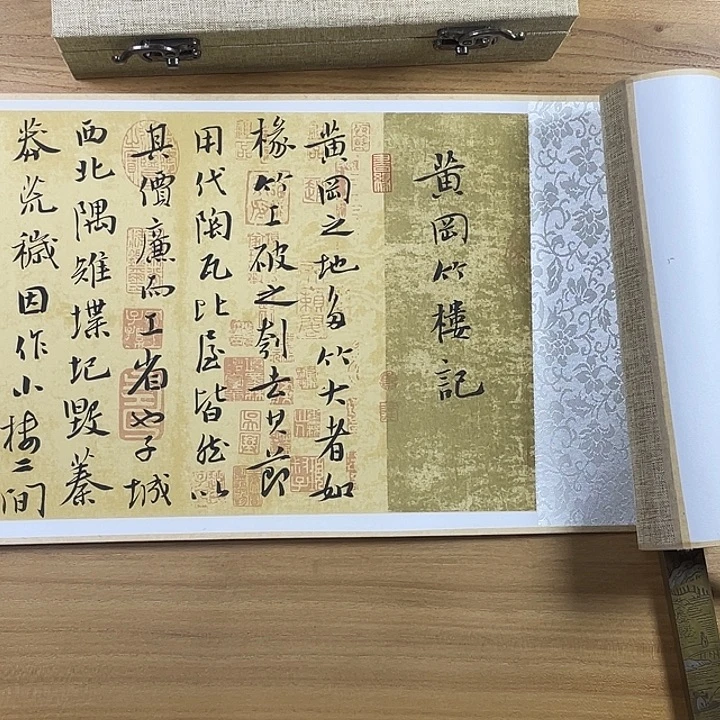 黃岡竹樓記
黃岡之地多竹大者如
椽竹工破之刳去其節
用代陶瓦比屋皆然以
其價廉而工省也子城
西北隅雉堞圮毀蓁
莽荒穢因作小樓二間